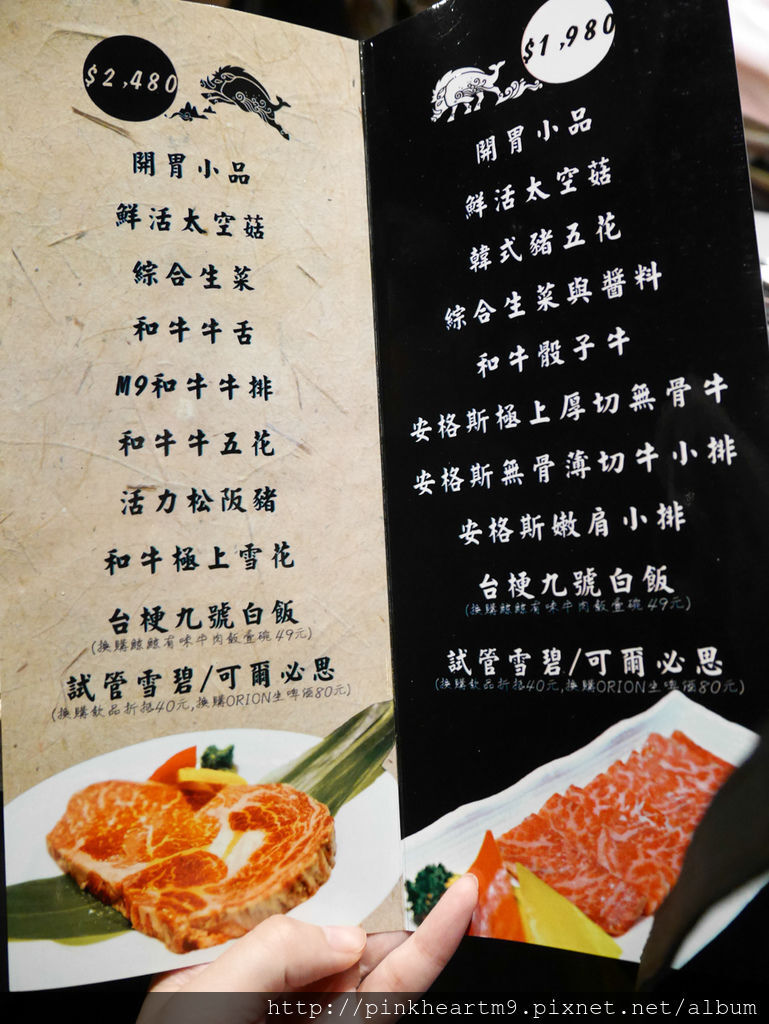 $2,480
開胃小品
鮮活太空菇
綜合生菜
和牛牛舌
M9和牛牛排
和牛牛五花
活力松阪豬
和牛極上雪花
台梗九號白飯
(換購鯨鯨有味牛肉飯壹碗49元)
試管雪碧/可爾必思
(換購飲品折抵40元,換購ORION生啤酒80元)
$1,980
開胃小品
鮮活太空菇
韓式豬五花
綜合生菜與醬料
和牛骰子牛
安格斯極上厚切無骨牛
安格斯無骨薄切牛小排
安格斯嫩肩小排
台梗九號白飯
(換購鯨鯨有味牛肉飯壹碗49元)
試管雪碧/可爾必思
(換購飲品折抵40元,換購ORION生啤酒80元)
http://pinkheartm9.pixnet.net/album